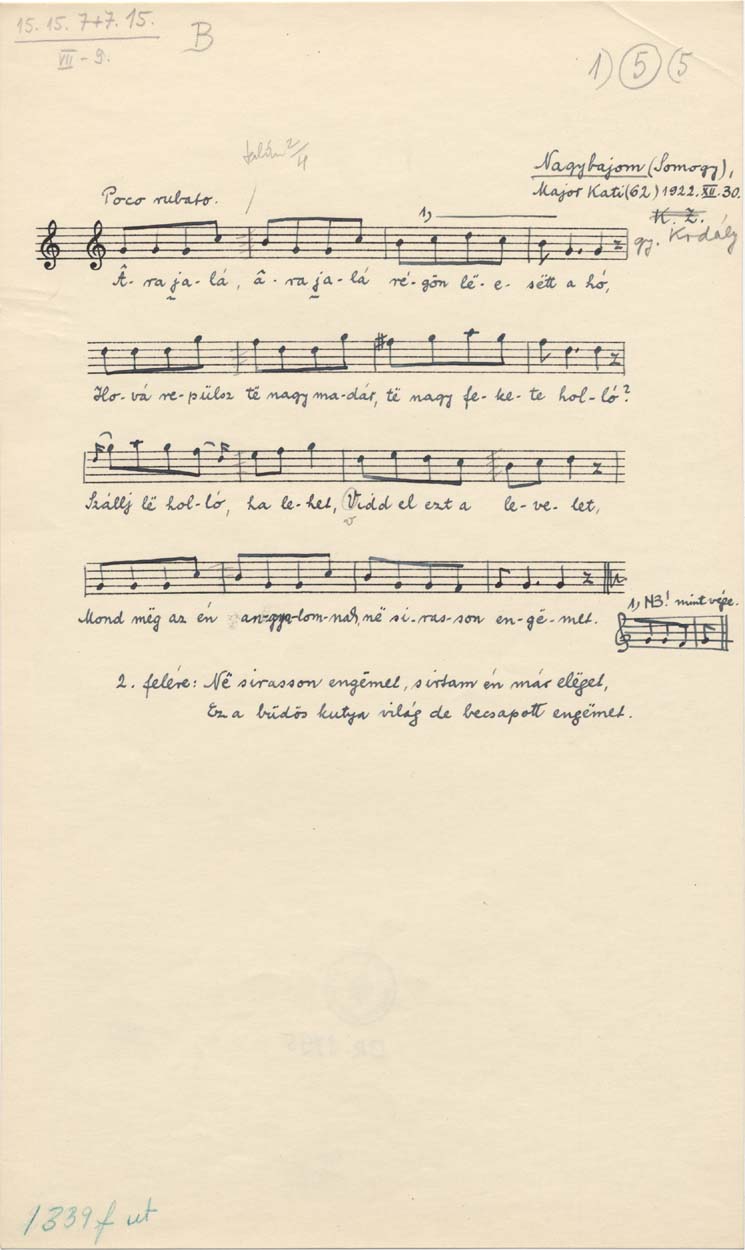 15. 15. 7+7. 15.
VII - 9.
B
1) 5 (5
talán 2/4
Nagybajom (Somogy),
Major Kati (62) 1922. XII. 30.
K. Z.
gy. Kodály
Poco rubato.
1,
Â-ra ja-lá, â-ra ja-lá ré-gön lë-e-sëtt a hó,
Ho-vá re-pülsz të nagy ma-dár, të nagy fe-ke-te hol-ló?
Szállj lë hol-ló, ha le-het, Vidd el ezt a le-ve-let,
v
Mond mëg az én an-gya-lom-nak, në si-ras-son en-gë-met.
1, NB! mint vége.
2. felére: Në sirasson engëmet, sirtam én már elëget,
Ez a büdös kutya világ de becsapott engëmet.
1339f